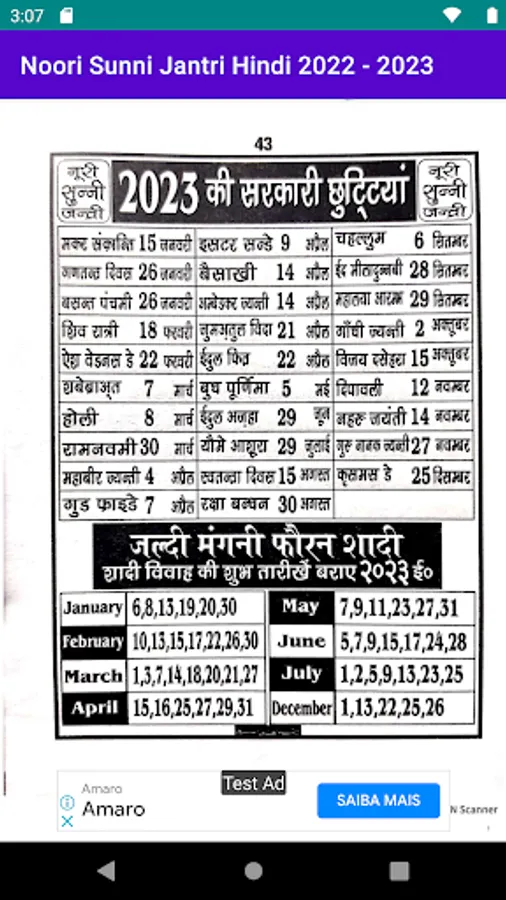 3:07
Noori Sunni Jantri Hindi 2022 - 2023
43
नूरी सुन्नी जन्त्री
2023 की सरकारी छुट्टियां
नूरी सुन्नी जन्त्री
मकर संक्रान्ति 15 जनवरी इसटर सन्डे 9 अप्रैल चहल्लुम 6 सितम्बर
गणतन्त्र दिवस 26 जनवरी बैसाखी 14 अप्रैल ईद मीलादुन्नबी 28 सितम्बर
बसन्त पंचमी 26 जनवरी अम्बेडकर ज्यन्ती 14 अप्रैल महालया आरम्भ 29 सितम्बर
शिव रात्री 18 फरवरी जुमअतुल विदा 21 अप्रैल गाँधी ज्यन्ती 2 अक्तूबर
ऐश वेडनस डे 22 फरवरी ईदुल फित्र 22 अप्रैल विजय दसेहरा 15 अक्तूबर
शबेब्राअ्त 7 मार्च बुध पूर्णिमा 5 मई दिपावली 12 नवम्बर
होली 8 मार्च ईदुल अज़्हा 29 जून नहरू जयंती 14 नवम्बर
रामनवमी 30 मार्च यौमे आशूरा 29 जुलाई गुरू नानक ज्यन्ती 27 नवम्बर
महाबीर ज्यन्ती 4 अप्रैल स्वतन्त्रा दिवस 15 अगस्त कृसमस डे 25 दिसम्बर
गुड फ्राइडे 7 अप्रैल रक्षा बन्धन 30 अगस्त
जल्दी मंगनी फौरन शादी
शादी विवाह की शुभ तारीखें बराए २०२३ ई०
January 6,8,13,19,20,30 May 7,9,11,23,27,31
February 10,13,15,17,22,26,30 June 5,7,9,15,17,24,28
March 1,3,7,14,18,20,21,27 July 1,2,5,9,13,23,25
April 15,16,25,27,29,31 December 1,13,22,25,26
Test Ad
Amaro
Amaro
SAIBA MAIS
N Scanner